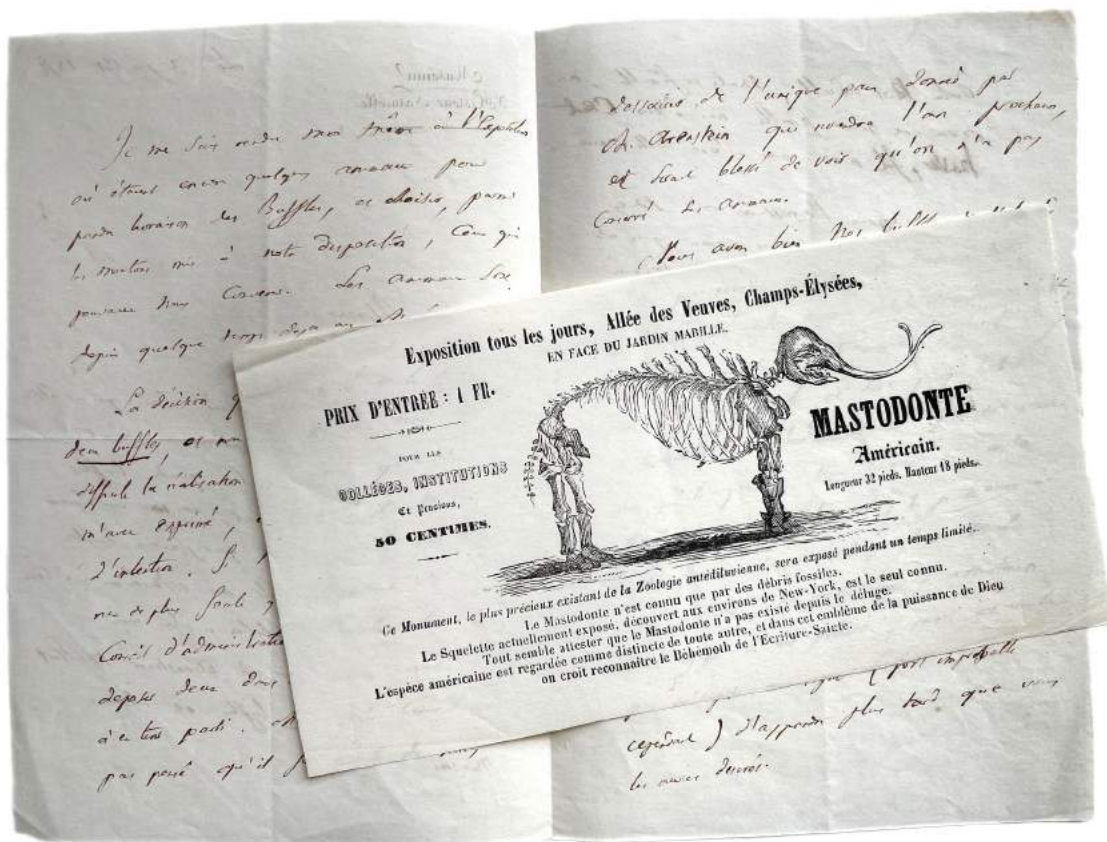 Je me suis rendu moi même à l'Exposition
où étaient encore quelques animaux pour
prendre livraison des Buffles, et choisir, parmi
les moutons mis à notre disposition, ceux qui
pouvaient nous convenir. Les animaux sont
depuis quelque temps déjà au
La décision
deux buffles, et
difficile la réalisation
m'avez exprimé,
l'intention. Si
de plus facile
Conseil d'administration
déposer deux
à en tirer parti.
pas pensé qu'il
de l'unique paire donnée par
M. Arenstein qui viendra l'an prochain,
et serait blessé de voir qu'on n'a pas
conservé ses animaux.
bien
(fort improbable
cependant) d'apprendre plus tard que vous
les aviez désirés.
Exposition tous les jours, Allée des Veuves, Champs-Élysées,
EN FACE DU JARDIN MABILLE.
PRIX D'ENTRÉE : 1 FR.
POUR LES
COLLÉGES, INSTITUTIONS
Et Pensions,
50 CENTIMES.
MASTODONTE
Américain.
Longueur 32 pieds. Hauteur 18 pieds.
Ce Monument, le plus précieux existant de la Zoologie antédiluvienne, sera exposé pendant un temps limité.
Le Mastodonte n'est connu que par des débris fossiles.
Le Squelette actuellement exposé, découvert aux environs de New-York, est le seul connu.
Tout semble attester que le Mastodonte n'a pas existé depuis le déluge.
L'espèce américaine est regardée comme distincte de toute autre, et dans cet emblème de la puissance de Dieu
on croit reconnaître le Béhemoth de l'Ecriture-Sainte.